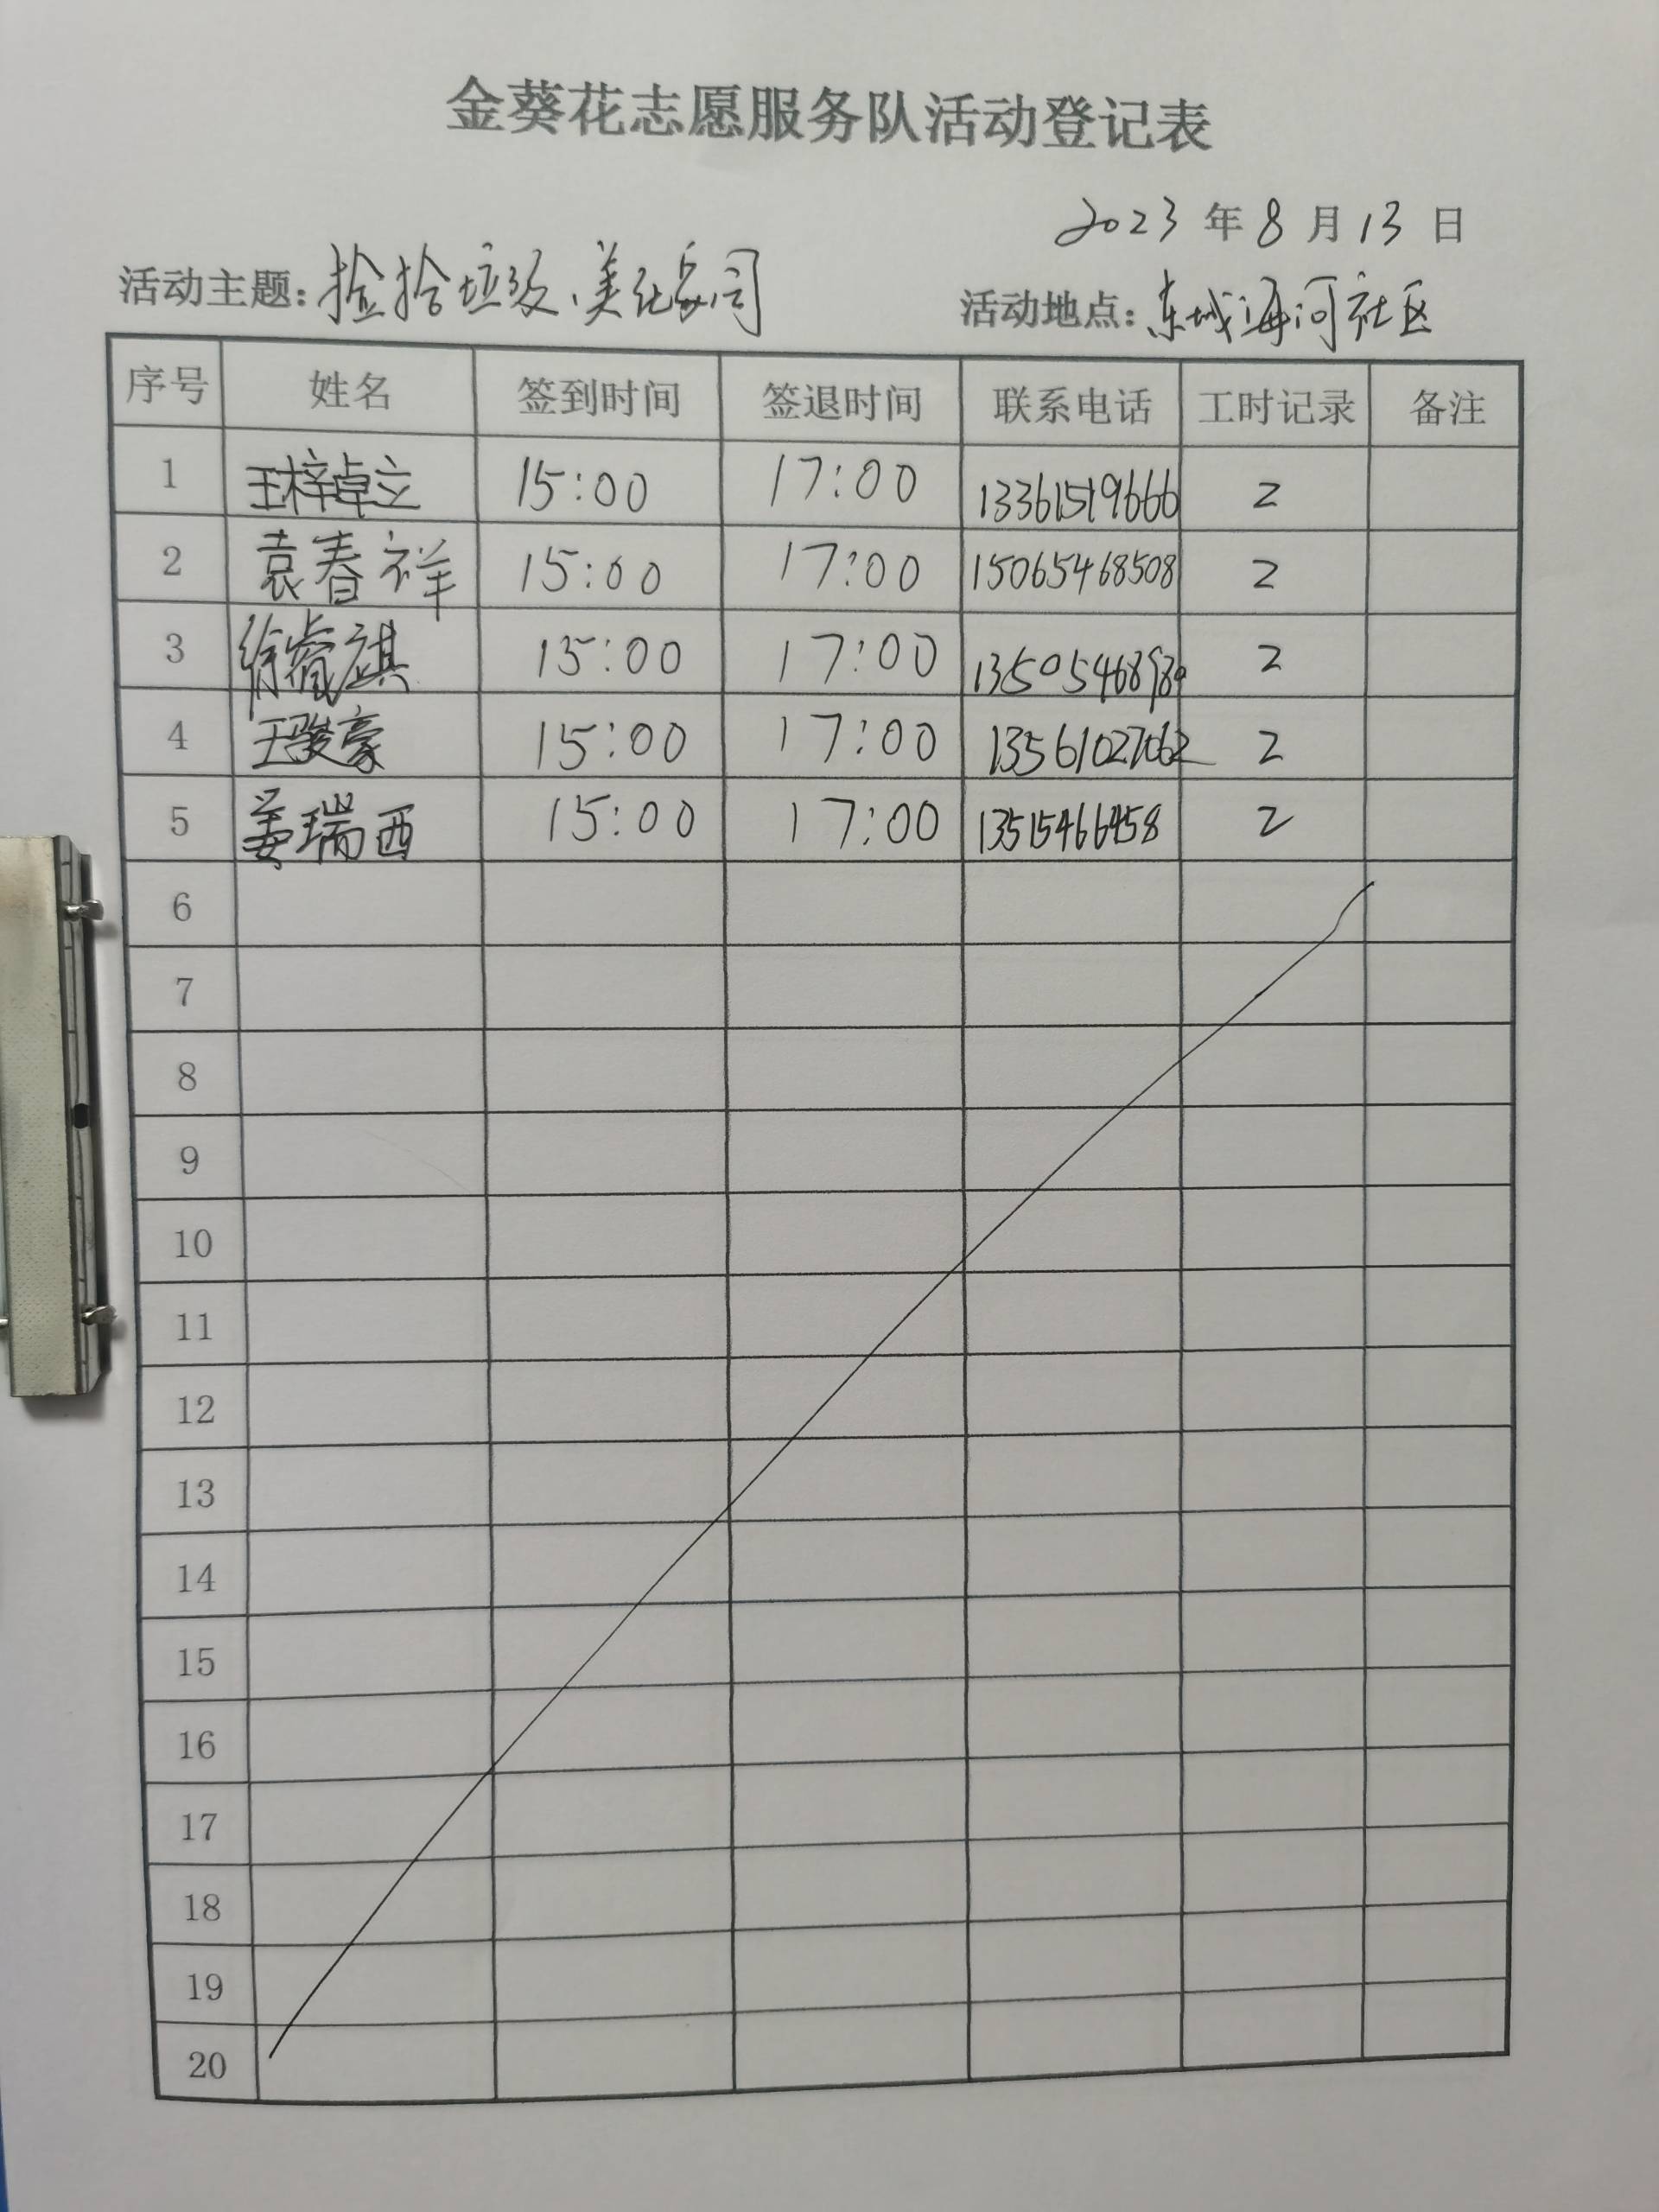 金葵花志愿服务队活动登记表
2023 年 8 月 13 日
活动主题：捡拾垃圾、美化家园 活动地点：东城海河社区
序号 姓名 签到时间 签退时间 联系电话 工时记录 备注
1 王梓卓立 15:00 17:00 13361519666 2
2 袁春祥 15:00 17:00 15065468508 2
3 徐睿祺 15:00 17:00 2
4 王骏豪 15:00 17:00 13561027062 2
5 姜瑞西 15:00 17:00 13515466458 2
6
7
8
9
10
11
12
13
14
15
16
17
18
19
20